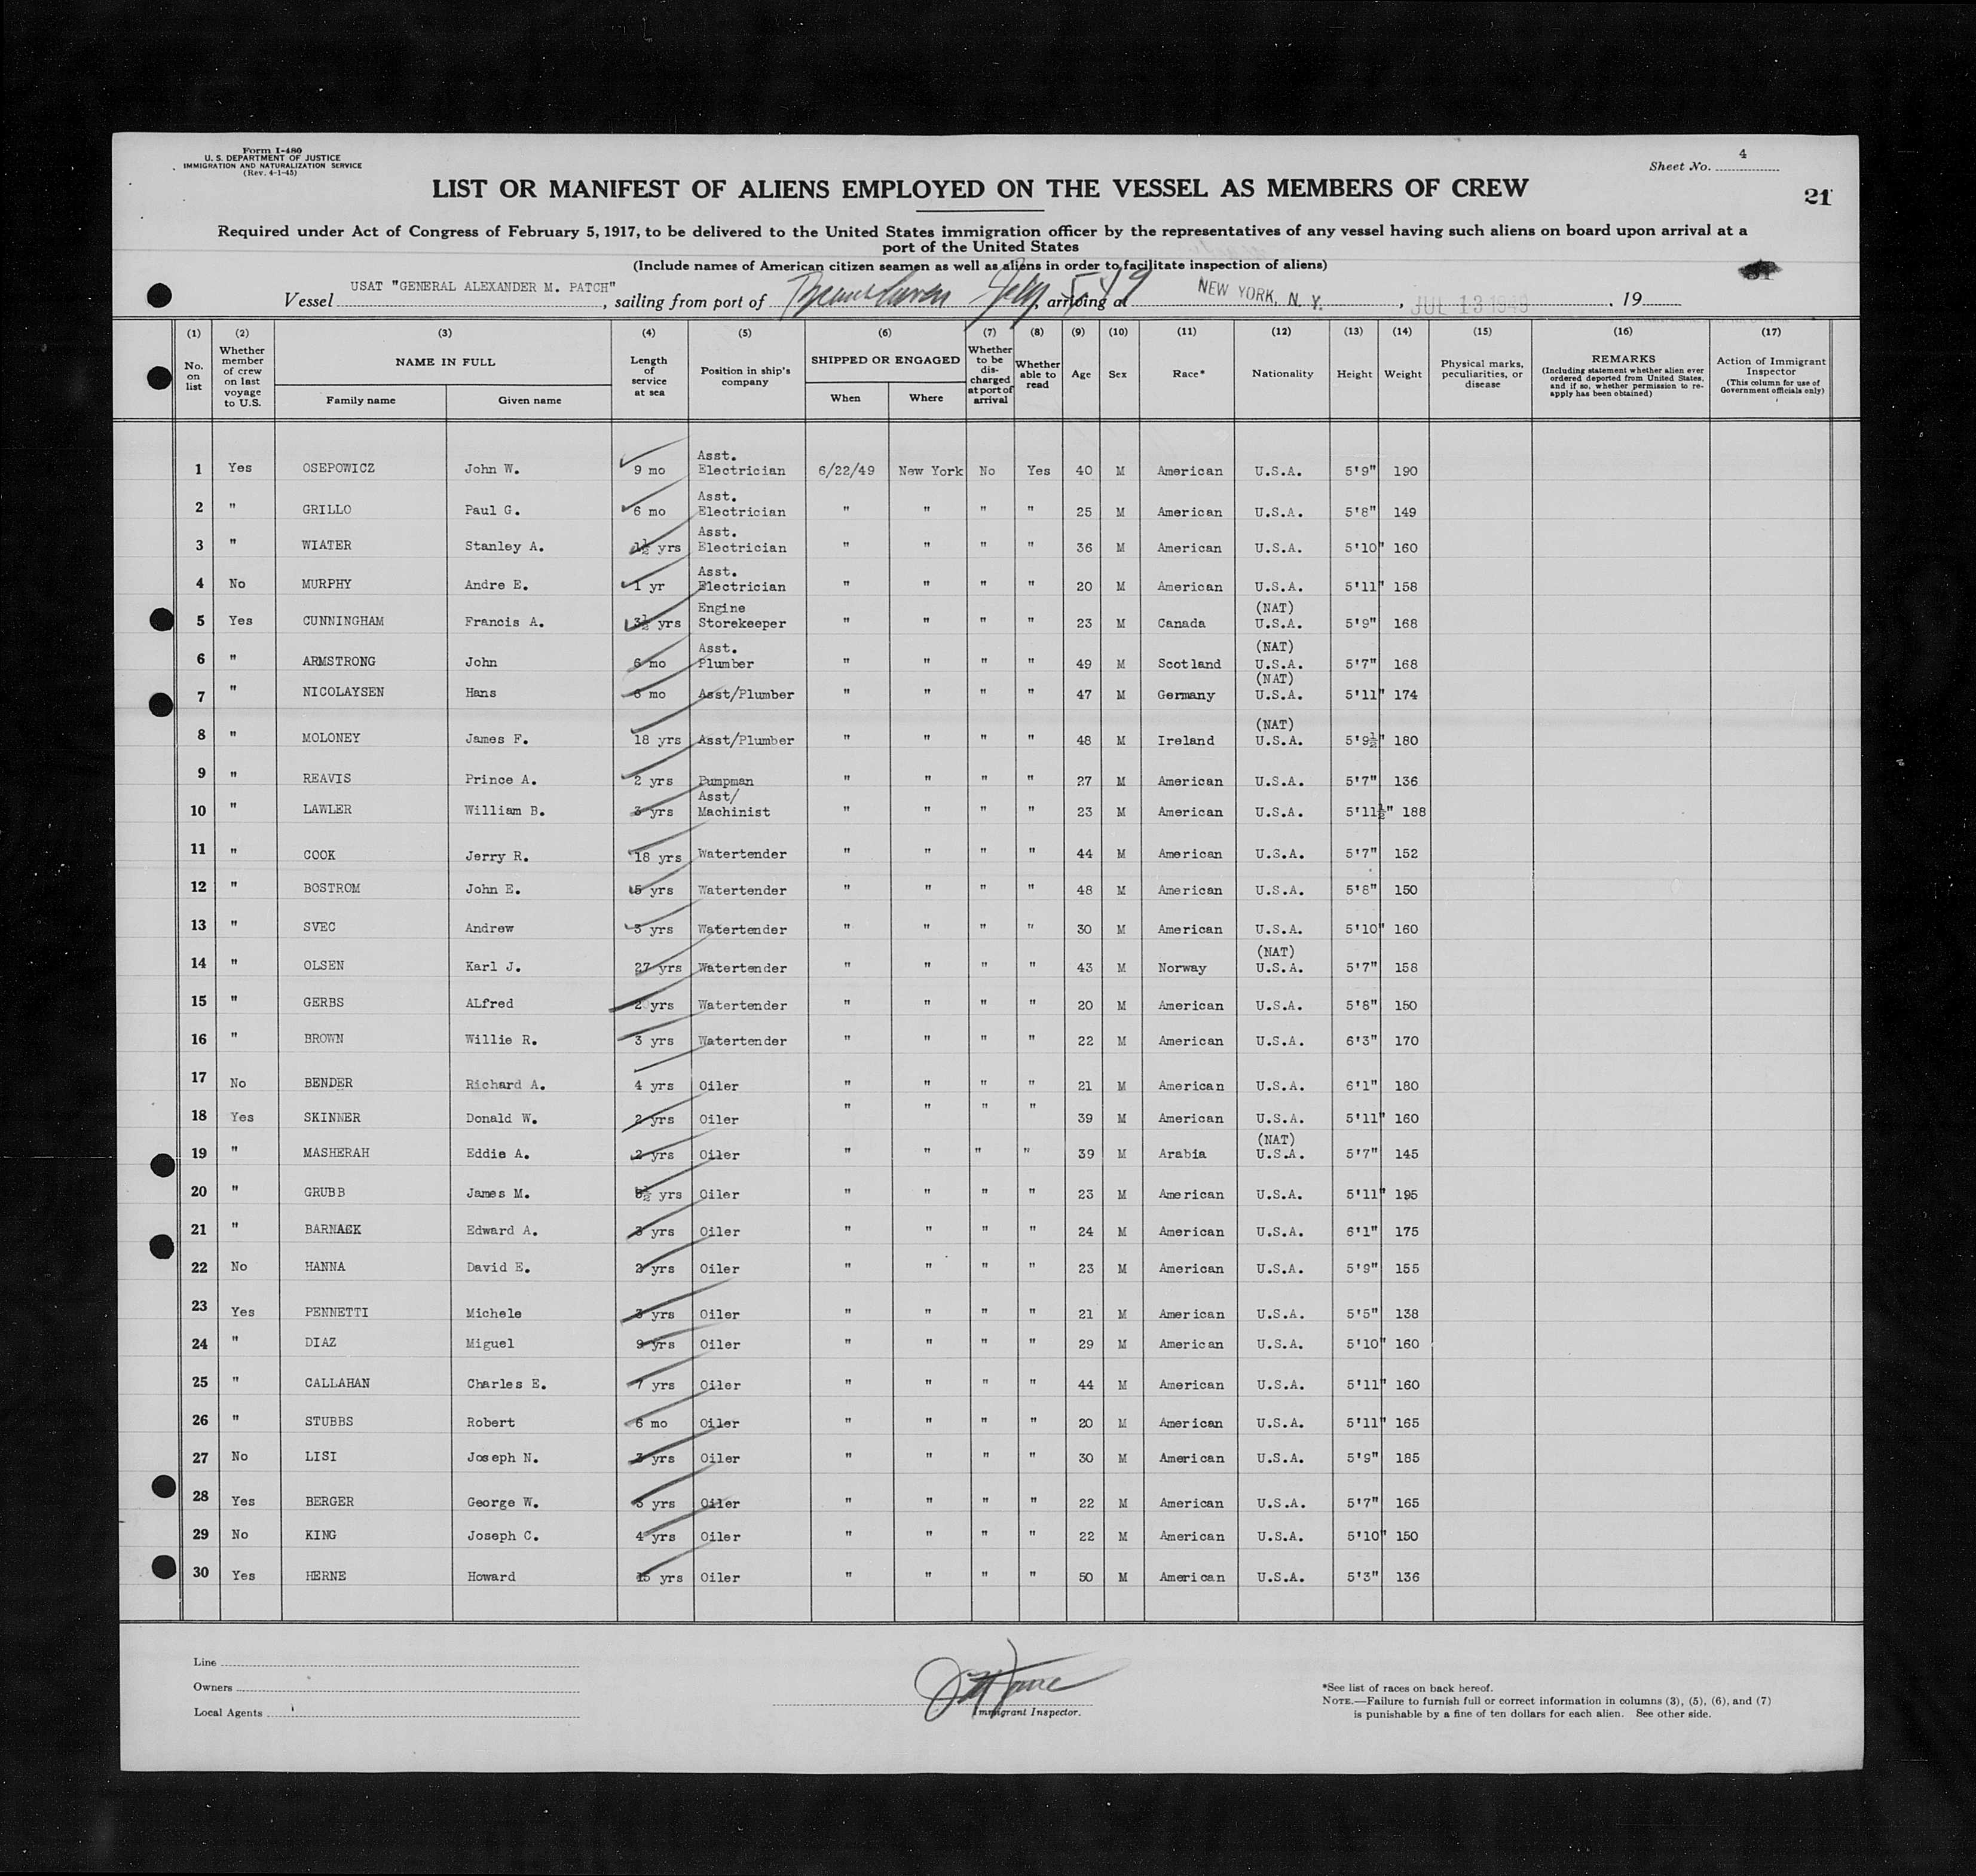 Form I-480
U. S. DEPARTMENT OF JUSTICE
IMMIGRATION AND NATURALIZATION SERVICE
(Rev. 4-1-45)
Sheet No. 4
21
LIST OR MANIFEST OF ALIENS EMPLOYED ON THE VESSEL AS MEMBERS OF CREW
Required under Act of Congress of February 5, 1917, to be delivered to the United States immigration officer by the representatives of any vessel having such aliens on board upon arrival at a
port of the United States
(Include names of American citizen seamen as well as aliens in order to facilitate inspection of aliens)
Vessel USAT "GENERAL ALEXANDER M. PATCH", sailing from port of July 5, 49, arriving at NEW YORK, N. Y., JUL 13 1949, 19
(1) No. on list
(2) Whether member of crew on last voyage to U.S.
(3) NAME IN FULL Family name Given name
(4) Length of service at sea
(5) Position in ship's company
(6) SHIPPED OR ENGAGED When Where
(7) Whether to be discharged at port of arrival
(8) Whether able to read
(9) Age
(10) Sex
(11) Race*
(12) Nationality
(13) Height
(14) Weight
(15) Physical marks, peculiarities, or disease
(16) REMARKS (Including statement whether alien ever ordered deported from United States, and if so, whether permission to re-apply has been obtained)
(17) Action of Immigrant Inspector (This column for use of Government officials only)
1 Yes OSEPOWICZ John W. 9 mo Asst. Electrician 6/22/49 New York No Yes 40 M American U.S.A. 5'9" 190
2 " GRILLO Paul G. 6 mo Asst. Electrician " " " " 25 M American U.S.A. 5'8" 149
3 " WIATER Stanley A. 1½ yrs Asst. Electrician " " " " 36 M American U.S.A. 5'10" 160
4 No MURPHY Andre E. 1 yr Asst. Electrician " " " " 20 M American U.S.A. 5'11" 158
5 Yes CUNNINGHAM Francis A. 3½ yrs Engine Storekeeper " " " " 23 M Canada (NAT) U.S.A. 5'9" 168
6 " ARMSTRONG John 6 mo Asst. Plumber " " " " 49 M Scotland (NAT) U.S.A. 5'7" 168
7 " NICOLAYSEN Hans 6 mo Asst/Plumber " " " " 47 M Germany (NAT) U.S.A. 5'11" 174
8 " MOLONEY James F. 18 yrs Asst/Plumber " " " " 48 M Ireland (NAT) U.S.A. 5'9½" 180
9 " REAVIS Prince A. 2 yrs Pumpman " " " " 27 M American U.S.A. 5'7" 136
10 " LAWLER William B. 3 yrs Asst/ Machinist " " " " 23 M American U.S.A. 5'11½" 188
11 " COOK Jerry R. 18 yrs Watertender " " " " 44 M American U.S.A. 5'7" 152
12 " BOSTROM John E. 5 yrs Watertender " " " " 48 M American U.S.A. 5'8" 150
13 " SVEC Andrew 3 yrs Watertender " " " " 30 M American U.S.A. 5'10" 160
14 " OLSEN Karl J. 27 yrs Watertender " " " " 43 M Norway (NAT) U.S.A. 5'7" 158
15 " GERBS ALfred 2 yrs Watertender " " " " 20 M American U.S.A. 5'8" 150
16 " BROWN Willie R. 3 yrs Watertender " " " " 22 M American U.S.A. 6'3" 170
17 No BENDER Richard A. 4 yrs Oiler " " " " 21 M American U.S.A. 6'1" 180
18 Yes SKINNER Donald W. 2 yrs Oiler " " " " 39 M American U.S.A. 5'11" 160
19 " MASHERAH Eddie A. 2 yrs Oiler " " " " 39 M Arabia (NAT) U.S.A. 5'7" 145
20 " GRUBB James M. yrs Oiler " " " " 23 M American U.S.A. 5'11" 195
21 " BARNAEK Edward A. 3 yrs Oiler " " " " 24 M American U.S.A. 6'1" 175
22 No HANNA David E. 2 yrs Oiler " " " " 23 M American U.S.A. 5'9" 155
23 Yes PENNETTI Michele 3 yrs Oiler " " " " 21 M American U.S.A. 5'5" 138
24 " DIAZ Miguel 9 yrs Oiler " " " " 29 M American U.S.A. 5'10" 160
25 " CALLAHAN Charles E. 7 yrs Oiler " " " " 44 M American U.S.A. 5'11" 160
26 " STUBBS Robert 6 mo Oiler " " " " 20 M American U.S.A. 5'11" 165
27 No LISI Joseph N. 3 yrs Oiler " " " " 30 M American U.S.A. 5'9" 185
28 Yes BERGER George W. yrs Oiler " " " " 22 M American U.S.A. 5'7" 165
29 No KING Joseph C. 4 yrs Oiler " " " " 22 M American U.S.A. 5'10" 150
30 Yes HERNE Howard 15 yrs Oiler " " " " 50 M American U.S.A. 5'3" 136
Line
Owners
Local Agents
Immigrant Inspector.
*See list of races on back hereof.
NOTE.—Failure to furnish full or correct information in columns (3), (5), (6), and (7)
is punishable by a fine of ten dollars for each alien. See other side.